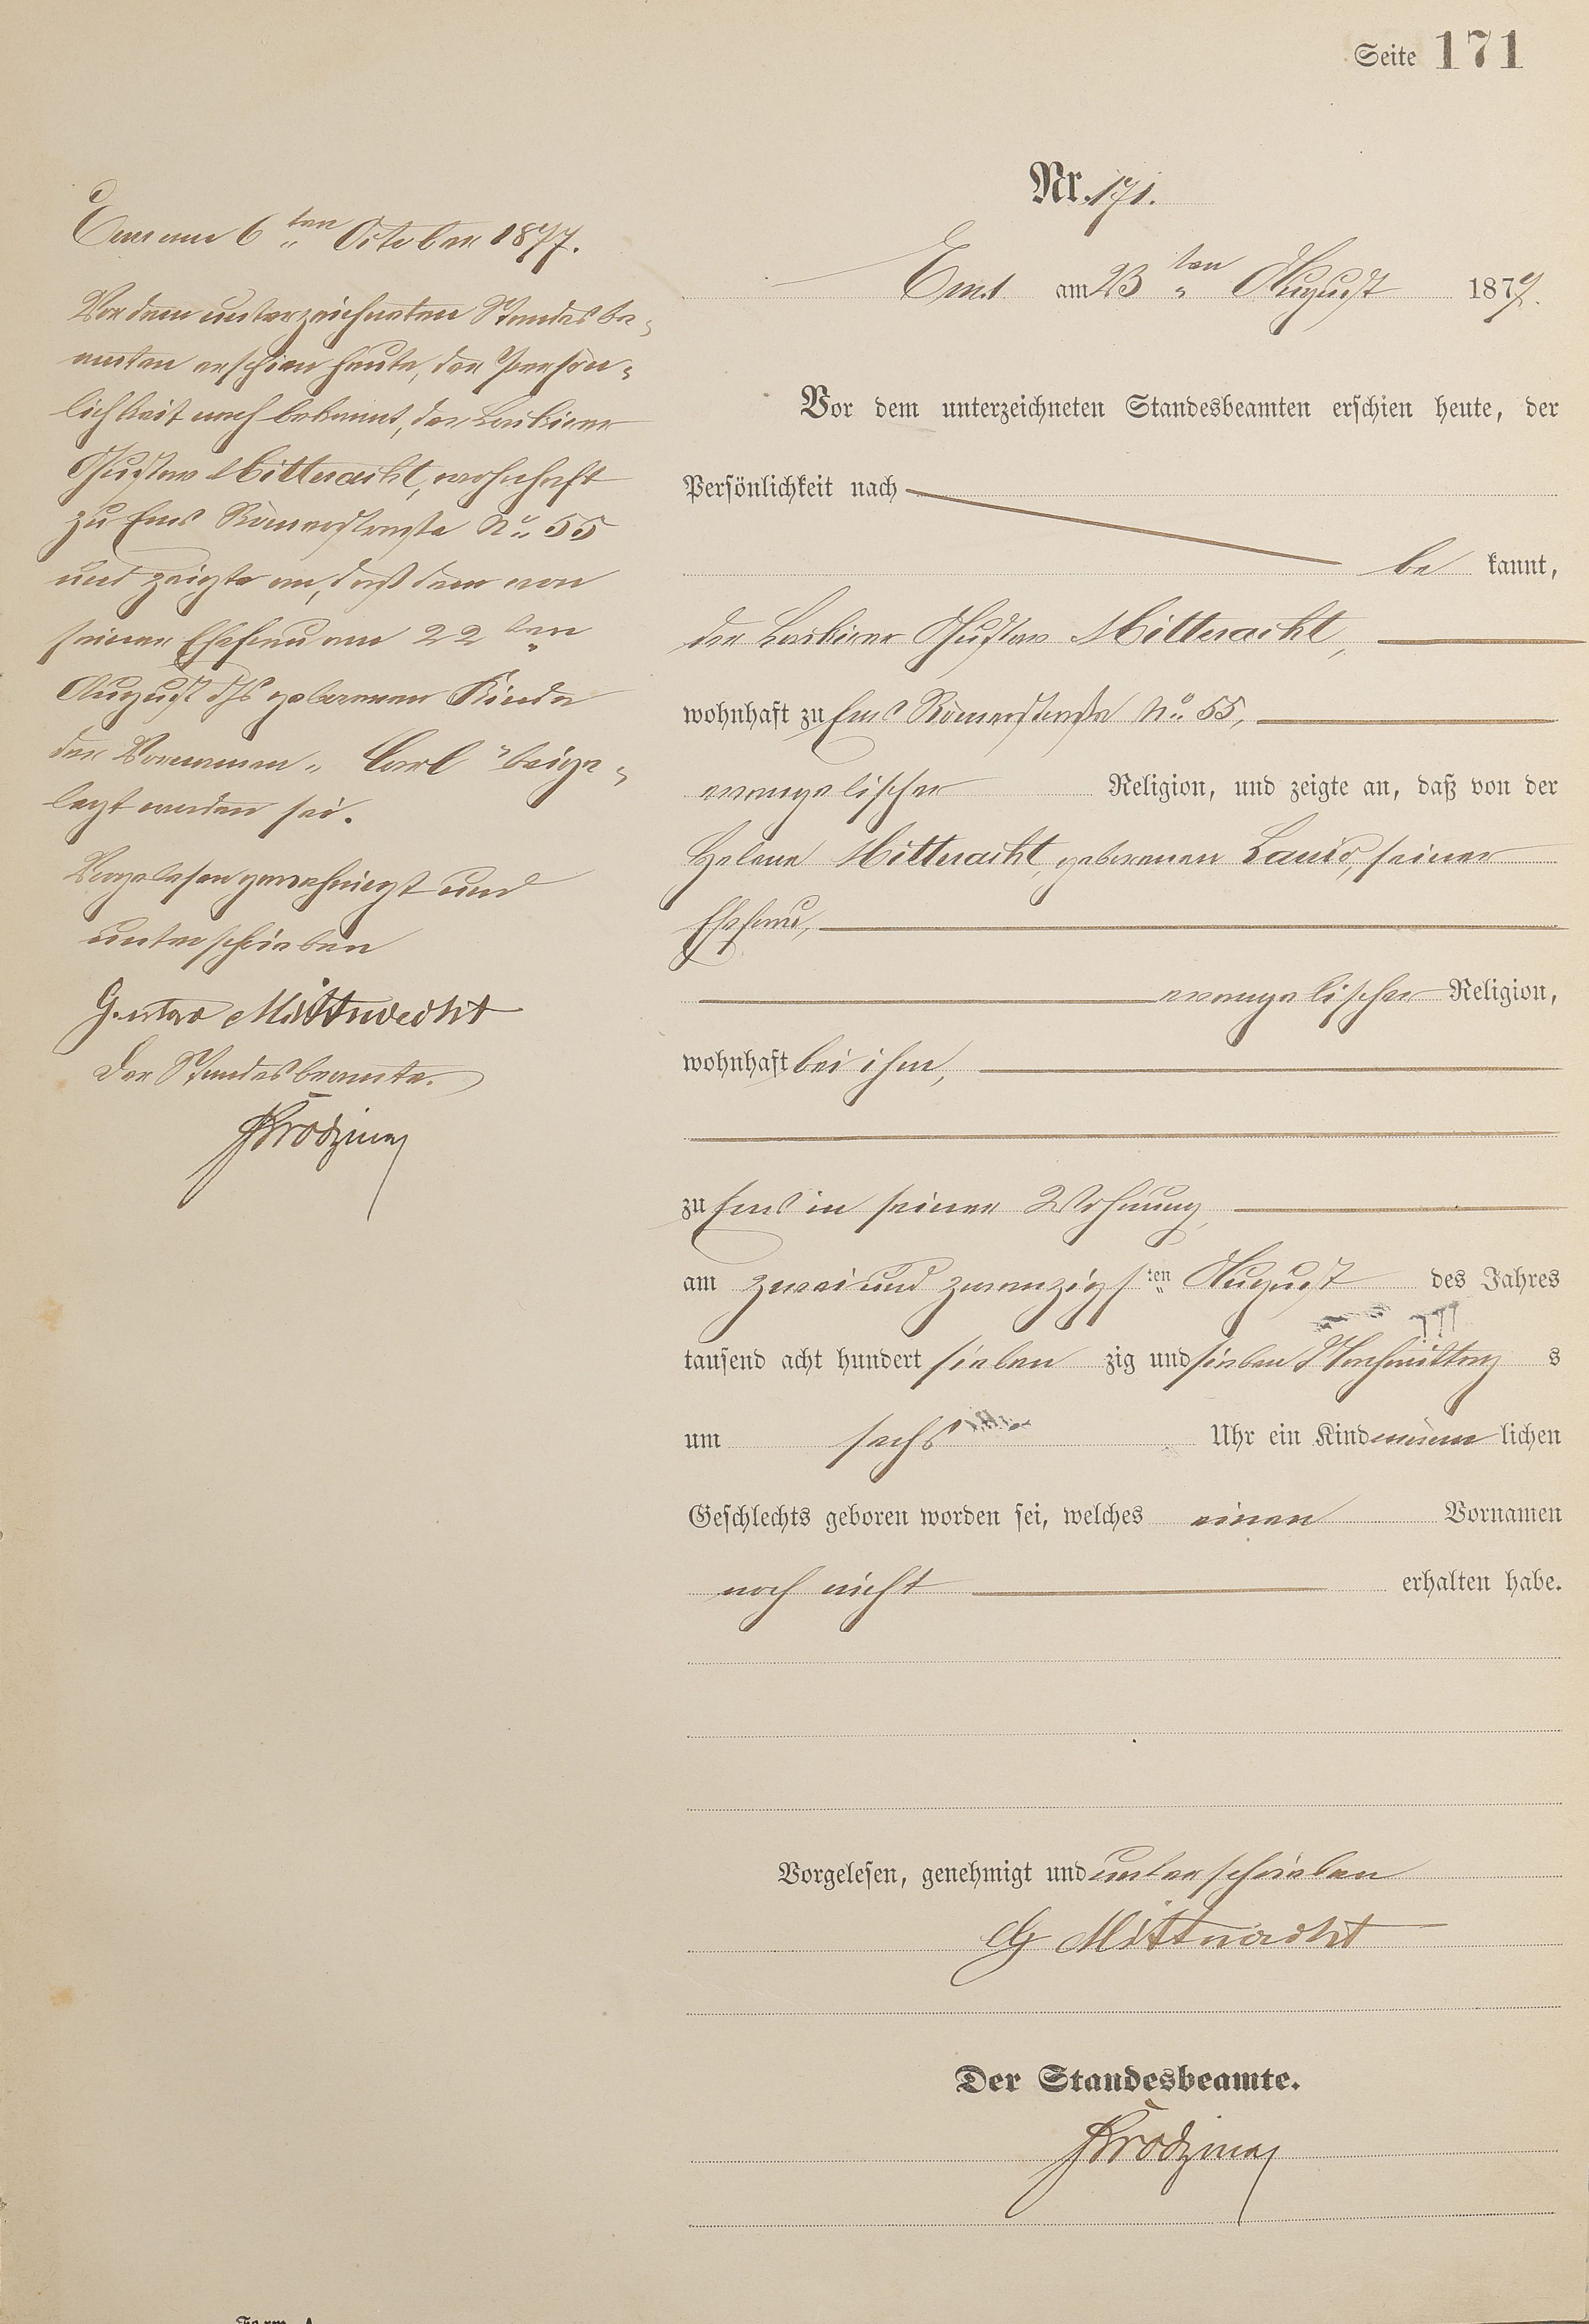 Seite 171
Ems am 6ten October 1877.
Vor dem unterzeichneten Standesbe-
amten erschien heute, der Persön-
lichkeit nach bekannt, der Lackierer
Gustav Mittnacht, wohnhaft
zu Ems Römerstraße No. 55
und zeigte an, daß dem von
seiner Ehefrau am 22ten
August d. Js geborenen Kinde
der Vornamen "Carl" beige-
legt worden sei.
Vorgelesen genehmigt und
unterschrieben
Gustav Mittnacht
Der Standesbeamte.
Nr. 171.
Ems am 23ten August 1877.
Vor dem unterzeichneten Standesbeamten erschien heute, der
Persönlichkeit nach
be kannt,
der Lackierer Gustav Mittnacht,
wohnhaft zu Ems Römerstraße No. 55,
evangelischer Religion, und zeigte an, daß von der
Helene Mittnacht, geborenen seiner
Ehefrau,
evangelischer Religion,
wohnhaft bei ihm,
zu Ems in seiner Wohnung,
am zwei und zwanzigsten August des Jahres
tausend acht hundert sieben zig und sieben Nachmittag s
um sechs Uhr ein Kind männ lichen
Geschlechts geboren worden sei, welches einen Vornamen
noch nicht erhalten habe.
Vorgelesen, genehmigt und unterschrieben
G Mittnacht
Der Standesbeamte.